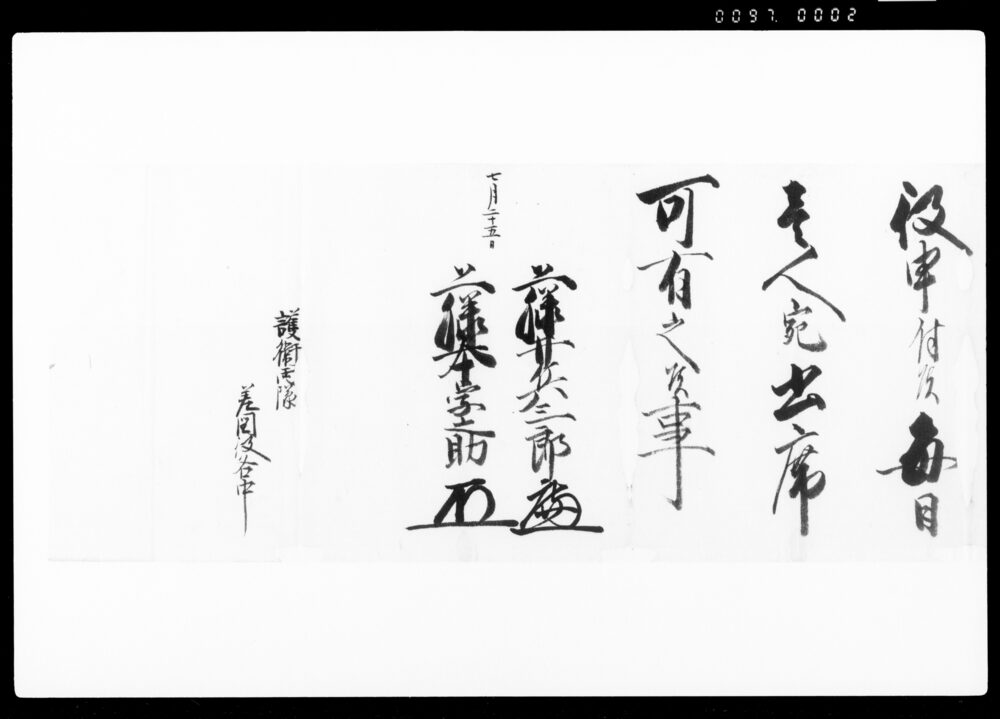 0097 0002
役申付候毎日
壱人宛出席
可有之候事
七月二十五日
藤井兵三郎
藤本学之助
護衛士隊
差図役谷中